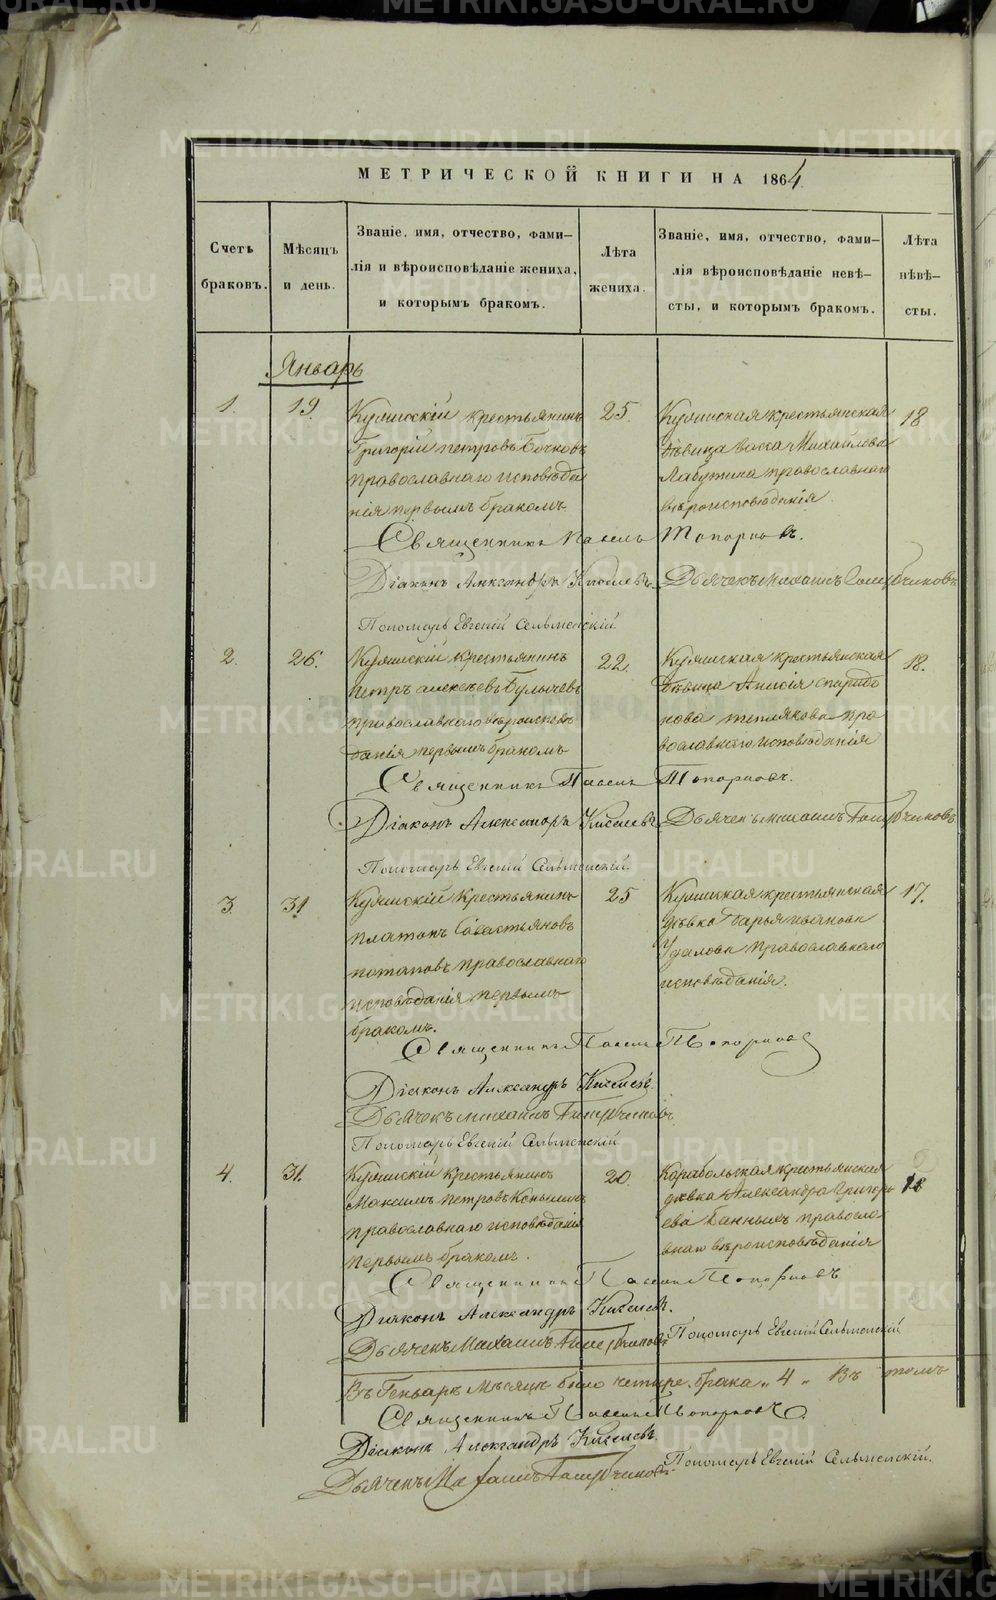 METRIKI.GASO-URAL.RU
МЕТРИЧЕСКОЙ КНИГИ НА 1864
Счетъ браковъ.
Мѣсяцъ и день.
Званіе, имя, отчество, фами-
лія и вѣроисповѣданіе жениха,
и которымъ бракомъ.
Лѣта жениха.
Званіе, имя, отчество, фами-
лія вѣроисповѣданіе невѣ-
сты, и которымъ бракомъ.
Лѣта
нѣвѣ-
сты.
Январь
1. 19.
крестьянинъ
Григорій Петровъ Бочковъ
православнаго исповѣда
нія первымъ бракомъ
25.
крестьянская
дѣвица Васса Михайлова
Лабутина православнаго
вѣроисповѣданія
18
Священникъ Павелъ Топорковъ.
Діаконъ Александръ Киселевъ. Дьячекъ Михаилъ
Пономарь Евгеній Сельменскій
2. 26.
крестьянинъ
Петръ Алексѣевъ Булычевъ
православнаго вѣроиспов
ѣданія первымъ бракомъ
22.
крестьянская
дѣвица Анисія Спиридо
нова Теплякова пра
вославнаго исповѣданія
18.
Священникъ Павелъ Топорковъ.
Діаконъ Александръ Киселевъ Дьячекъ Михаилъ
Пономарь Евгеній Сельменскій.
3. 31.
Крестьянинъ
Платонъ Савастьяновъ
Потаповъ православнаго
исповѣданія первымъ
бракомъ.
25
крестьянская
дѣвка Дарья Иванова
православнаго
исповѣданія.
17.
Священникъ Павелъ Топорковъ
Діаконъ Александръ Киселевъ.
Дьячекъ Михаилъ
Пономарь Евгеній Сельменскій
4. 31.
Крестьянинъ
Максимъ Петровъ
православнаго исповѣданія
первымъ бракомъ.
20.
Карабольская крестьянская
дѣвка Александра Григорь
ева Банныхъ правосла
внаго вѣроисповѣданія
18
Священникъ Павелъ Топорковъ
Діаконъ Александръ Киселевъ.
Дьячекъ Михаилъ
Пономарь Евгеній Сельменскій
Въ Генварѣ мѣсяцѣ было четыре брака „4„ Въ томъ
Священникъ Павелъ Топорковъ.
Діаконъ Александръ Киселевъ
Дьячекъ Михаилъ
Пономарь Евгеній Сельменскій.